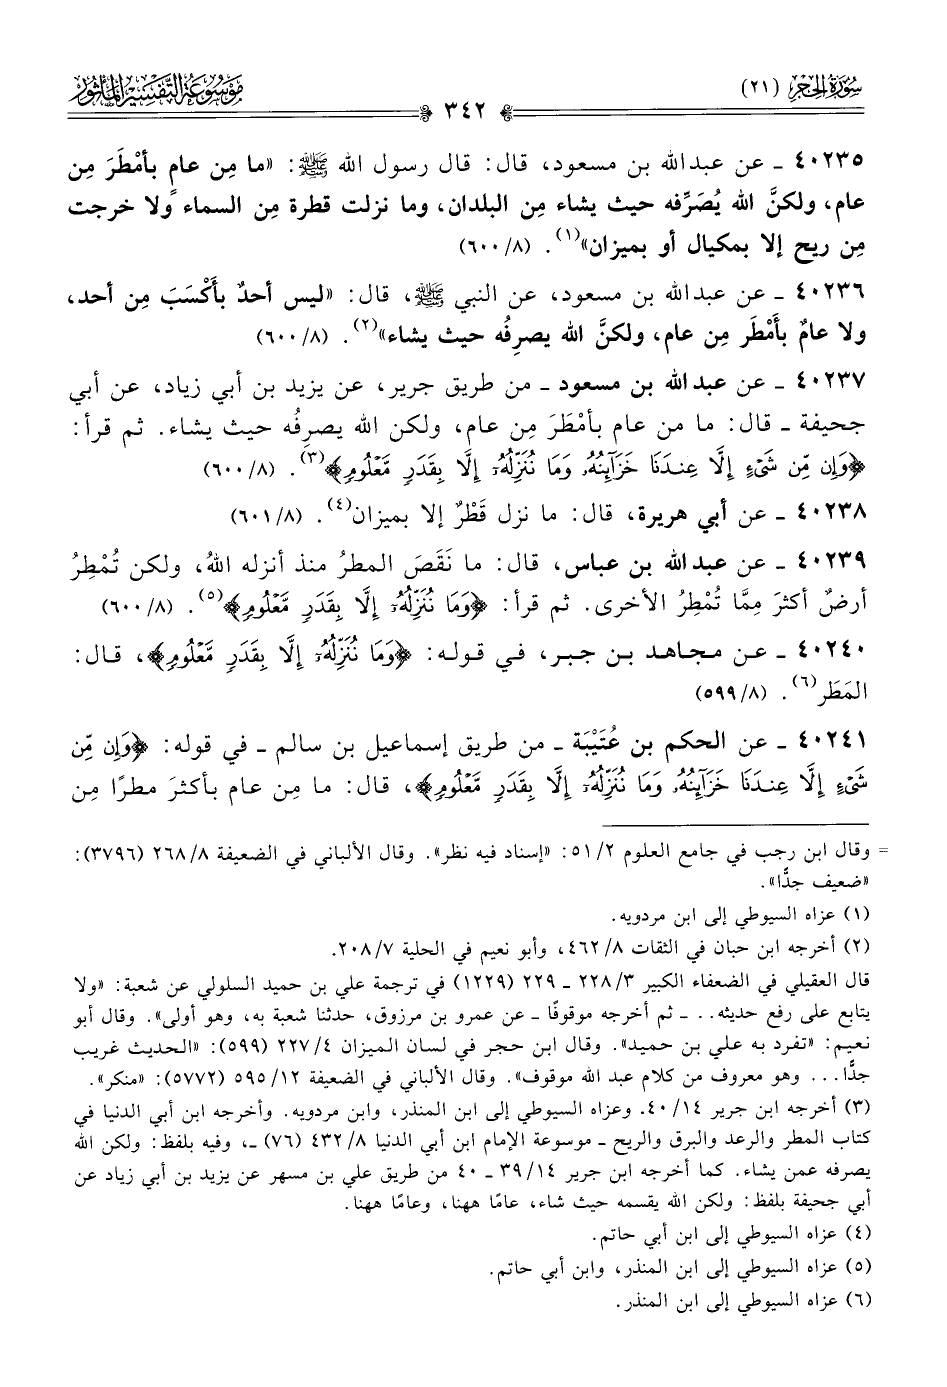 سُورَةُ الحِجْرِ (٢١)
٣٤٢
مَوْسُوعَةُ التَّفْسِيرِ المَأْثُورِ
٤٠٢٣٥ ـ عن عبدالله بن مسعود، قال: قال رسول الله ﷺ: «ما مِن عامٍ بأمْطَرَ مِن
عام، ولكنَّ الله يُصَرِّفه حيث يشاء مِن البلدان، وما نزلت قطرة مِن السماء ولا خرجت
مِن ريح إلا بمكيال أو بميزان»(١). (٨/٦٠٠)
٤٠٢٣٦ ـ عن عبدالله بن مسعود، عن النبي ﷺ، قال: «ليس أحدٌ بأَكْسَبَ مِن أحد،
ولا عامٌ بأَمْطَر مِن عام، ولكنَّ الله يصرِفُه حيث يشاء»(٢). (٨/٦٠٠)
٤٠٢٣٧ ـ عن عبدالله بن مسعود ـ من طريق جرير، عن يزيد بن أبي زياد، عن أبي
جحيفة ـ قال: ما من عام بأمْطَرَ مِن عام، ولكن الله يصرِفُه حيث يشاء. ثم قرأ:
﴿وَإِن مِّن شَيْءٍ إِلَّا عِندَنَا خَزَآئِنُهُۥ وَمَا نُنَزِّلُهُۥٓ إِلَّا بِقَدَرٍ مَّعْلُومٍ﴾(٣). (٨/٦٠٠)
٤٠٢٣٨ ـ عن أبي هريرة، قال: ما نزل قَطْرٌ إلا بميزان(٤). (٨/٦٠١)
٤٠٢٣٩ ـ عن عبدالله بن عباس، قال: ما نَقَصَ المطرُ منذ أنزله اللهُ، ولكن تُمْطِرُ
أرضٌ أكثرَ مِمَّا تُمْطِرُ الأخرى. ثم قرأ: ﴿وَمَا نُنَزِّلُهُۥٓ إِلَّا بِقَدَرٍ مَّعْلُومٍ﴾(٥). (٨/٦٠٠)
٤٠٢٤٠ ـ عن مجاهد بن جبر، في قوله: ﴿وَمَا نُنَزِّلُهُۥٓ إِلَّا بِقَدَرٍ مَّعْلُومٍ﴾، قال:
المَطَر(٦). (٨/٥٩٩)
٤٠٢٤١ ـ عن الحكم بن عُتَيْبَة ـ من طريق إسماعيل بن سالم ـ في قوله: ﴿وَإِن مِّن
شَيْءٍ إِلَّا عِندَنَا خَزَآئِنُهُۥ وَمَا نُنَزِّلُهُۥٓ إِلَّا بِقَدَرٍ مَّعْلُومٍ﴾، قال: ما مِن عام بأكثرَ مطرًا مِن
= وقال ابن رجب في جامع العلوم ٥١/٢: «إسناد فيه نظر». وقال الألباني في الضعيفة ٢٦٨/٨ (٣٧٩٦):
«ضعيف جدًّا».
(١) عزاه السيوطي إلى ابن مردويه.
(٢) أخرجه ابن حبان في الثقات ٤٦٢/٨، وأبو نعيم في الحلية ٢٠٨/٧.
قال العقيلي في الضعفاء الكبير ٢٢٨/٣ ـ ٢٢٩ (١٢٢٩) في ترجمة علي بن حميد السلولي عن شعبة: «ولا
يتابع على رفع حديثه.. ـ ثم أخرجه موقوفًا ـ عن عمرو بن مرزوق، حدثنا شعبة به، وهو أولى». وقال أبو
نعيم: «تفرد به علي بن حميد». وقال ابن حجر في لسان الميزان ٢٢٧/٤ (٥٩٩): «الحديث غريب
جدًّا... وهو معروف من كلام عبد الله موقوف». وقال الألباني في الضعيفة ٥٩٥/١٢ (٥٧٧٢): «منكر».
(٣) أخرجه ابن جرير ٤٠/١٤. وعزاه السيوطي إلى ابن المنذر، وابن مردويه. وأخرجه ابن أبي الدنيا في
كتاب المطر والرعد والبرق والريح ـ موسوعة الإمام ابن أبي الدنيا ٤٣٢/٨ (٧٦) ـ، وفيه بلفظ: ولكن الله
يصرفه عمن يشاء. كما أخرجه ابن جرير ٣٩/١٤ ـ ٤٠ من طريق علي بن مسهر عن يزيد بن أبي زياد عن
أبي جحيفة بلفظ: ولكن الله يقسمه حيث شاء، عامًا ههنا، وعامًا ههنا.
(٤) عزاه السيوطي إلى ابن أبي حاتم.
(٥) عزاه السيوطي إلى ابن المنذر، وابن أبي حاتم.
(٦) عزاه السيوطي إلى ابن المنذر.